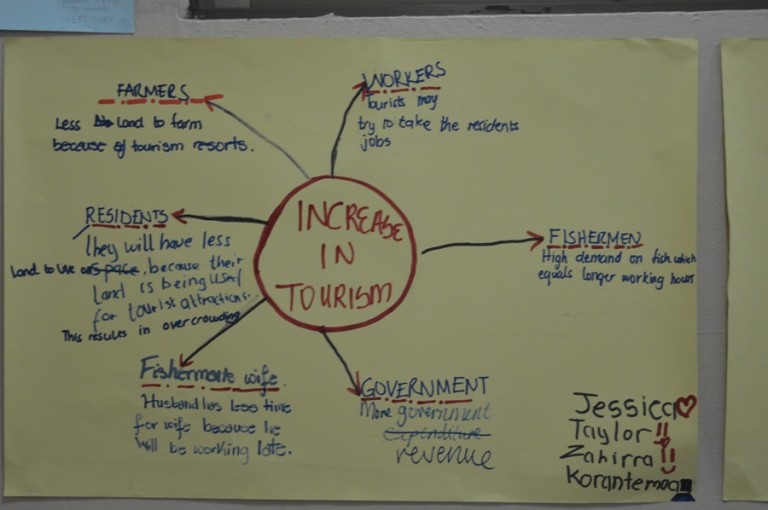 FARMERS
Less land to farm
because of tourism resorts.
WORKERS
Tourists may
try to take the residents
jobs
RESIDENTS
They will have less
land to live on space, because their
land is being used
for tourist attractions.
This results in overcrowding
INCREASE
IN
TOURISM
FISHERMEN
High demand on fish which
equals longer working hours
Fisherman wife
Husband has less time
for wife because he
will be working late.
GOVERNMENT
More government
expenditure
revenue
Jessica
Taylor!!
Zahirra!!
Korantemaa